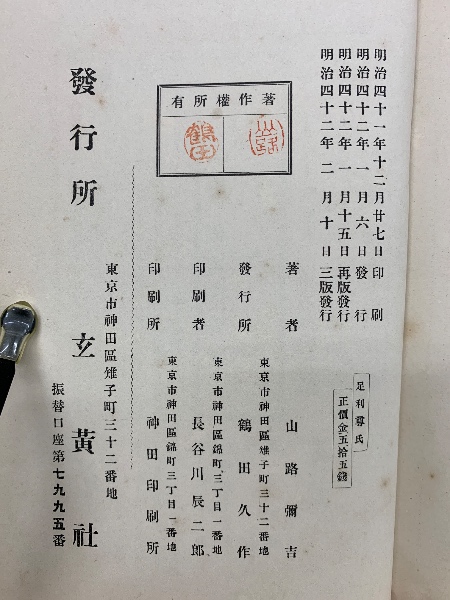 明治四十一年十二月廿七日印刷
明治四十二年一月六日發行
明治四十二年一月十五日再版發行
明治四十二年二月十日三版發行
足利尊氏
正價金五拾五錢
著作權所有
鶴田
著者 山路彌吉
東京市神田區雉子町三十二番地
發行所 鶴田久作
東京市神田區錦町三丁目一番地
印刷者 長谷川辰二郎
東京市神田區錦町三丁目一番地
印刷所 神田印刷所
東京市神田區雉子町三十二番地
發行所 玄黃社
振替口座第七九九五番